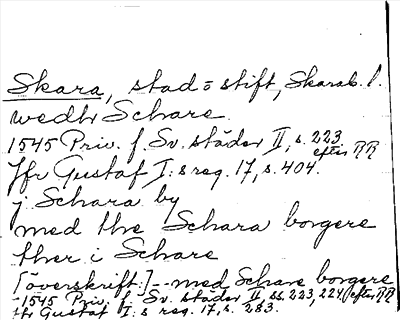 Skara, stad o stift, Skarab. l.
wedhr Schare
1545 Priv. f. Sv. städer II, s. 223
efter RR
Jfr Gustaf I:s reg. 17, s. 404.
j Schara by
med the Schara borgere
ther i Schare
[överskrift:] -- med Schare borgere
-1545 Priv. f. Sv. städer II, ss. 223, 224 (efter RR)
Jfr Gustaf I:s reg. 17, s. 283.